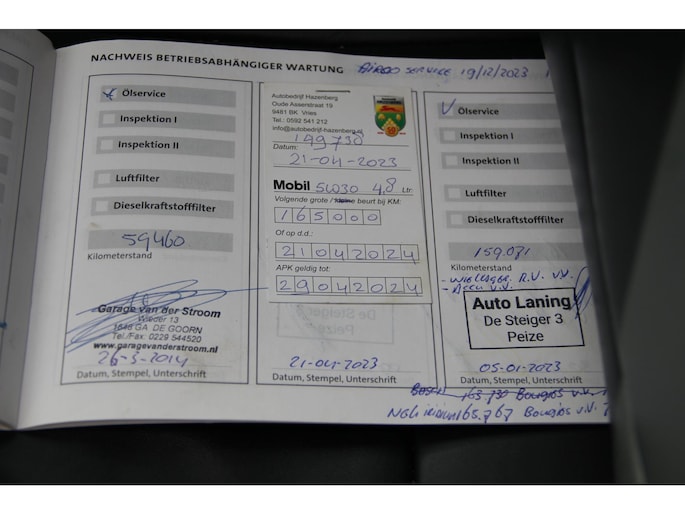 NACHWEIS BETRIEBSABHÄNGIGER WARTUNG
AIRCO SERVICE 19/12/2023
Ölservice
Inspektion I
Inspektion II
Luftfilter
Dieselkraftstofffilter
59460
Kilometerstand
Garage van der Stroom
Wieder 13
1648 GA DE GOORN
Tel./Fax 0229 544520
www.garagevanderstroom.nl
26-3-2014
Datum, Stempel, Unterschrift
Autobedrijf Hazenberg
Oude Asserstraat 19
9481 BK Vries
Tel.: 0592 541 212
info@autobedrijf-hazenberg.nl
Datum:
21-04-2023
Mobil 5W30 4,8 Ltr.
Volgende grote / kleine beurt bij KM:
165000
Of op d.d.:
21042024
APK geldig tot:
29042024
De Steiger
Peize
21-04-2023
Datum, Stempel, Unterschrift
Ölservice
Inspektion I
Inspektion II
Luftfilter
Dieselkraftstofffilter
159.071
Kilometerstand
R.V. V.V.
Auto Laning
De Steiger 3
Peize
05-01-2023
Datum, Stempel, Unterschrift
163.730 Bougies
165.767 Bougies V.V.